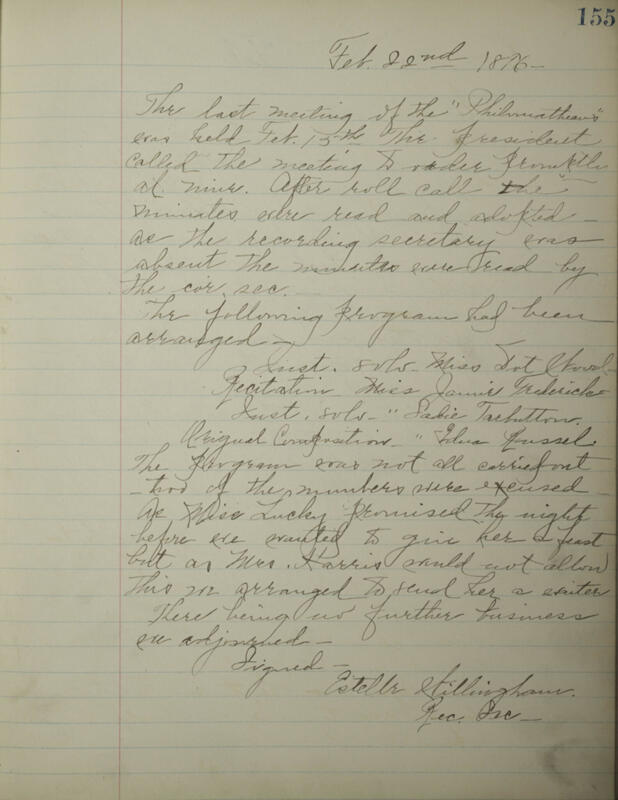 155
Feb. 22nd 1896-
The last meeting of the "Philomatheans"
was held Feb. 15th The president
called the meeting to order promptly
at nine. After roll call the
minutes were read and adopted-
as the recording secretary was
absent the minutes were read by
the cor. sec.
The following program had been
arranged-
Inst. solo- Miss Dot
Recitation Miss Jamie Frederick-
Inst. solo- " Sadie Tarbutton.
Original Composition- " Edna Russel.
The program was not all carried out
-two of the numbers were excused-
As Miss Lucky promised the night
before we wanted to give her a feast
but as Mrs. Harris would not allow
this we arranged to send her a
There being no further business
we adjourned-
Signed-
Estelle Stillingham.
Rec. Sec-